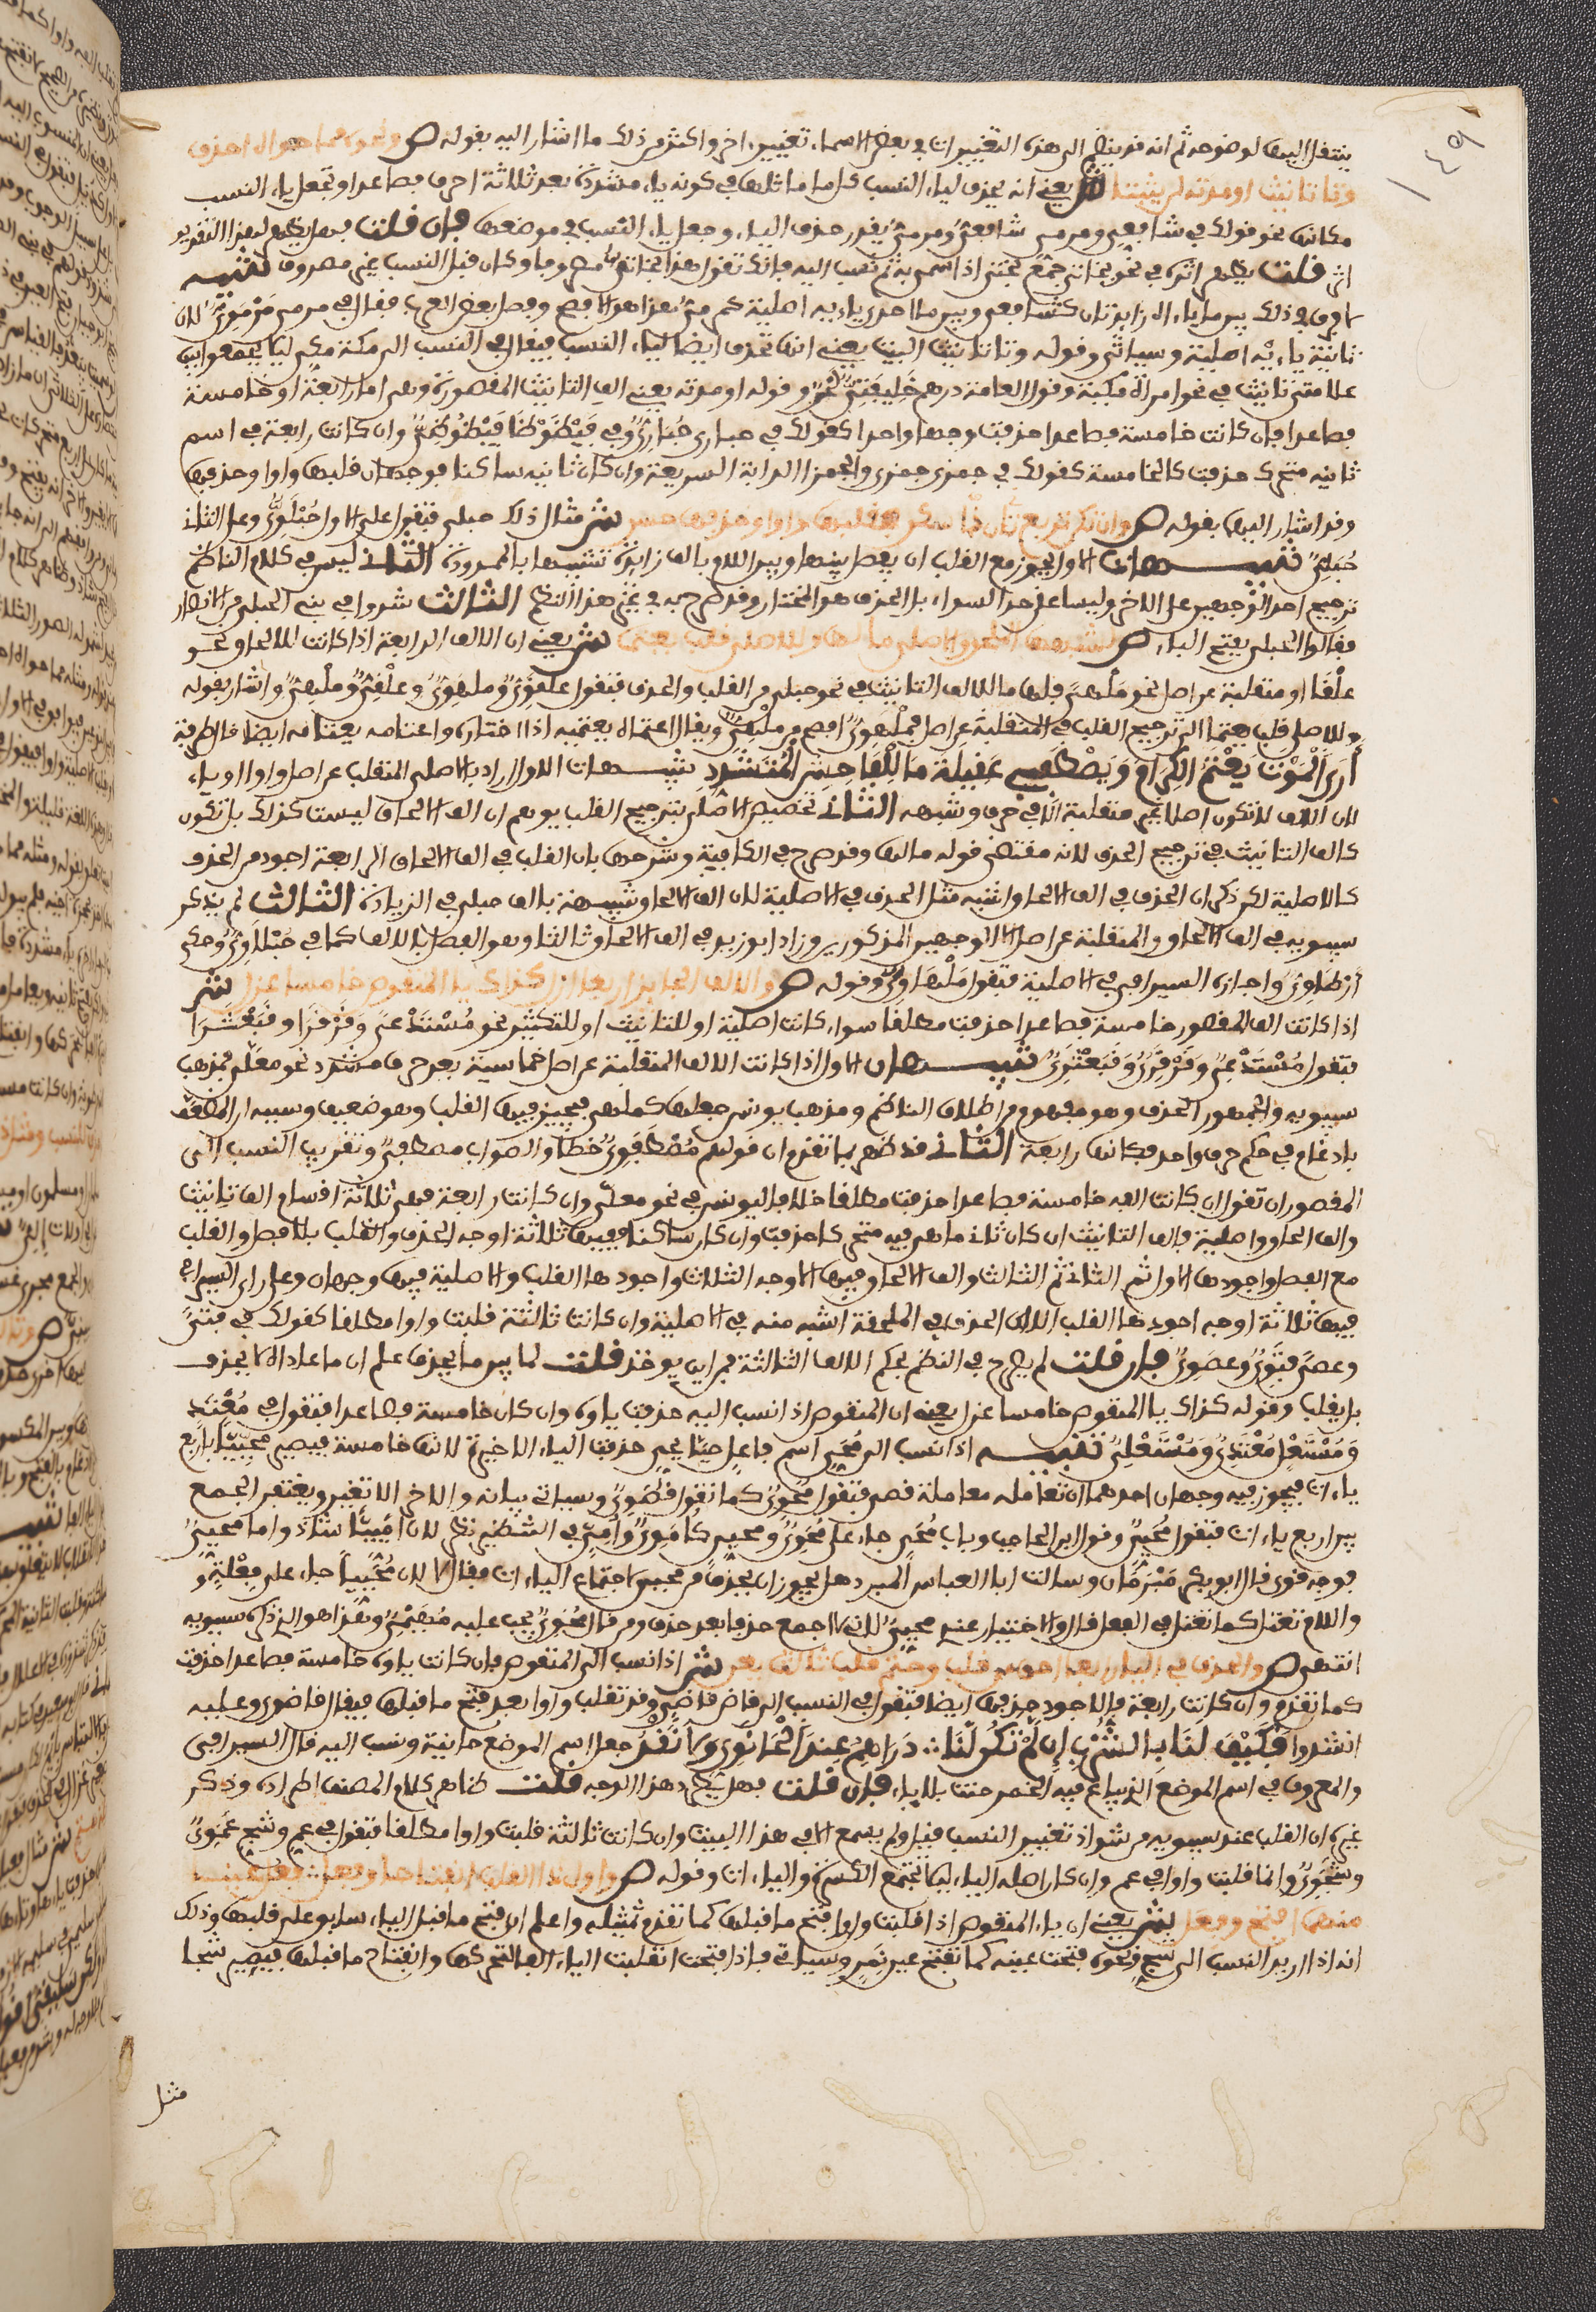 ينتقل اليها لوضوحه ثم انه قد ينضم الى هذه التغييرات في بعض الاسماء تغيير اخر واكثر من ذلك ما اشار اليه بقوله ص ومثله مما حواه احذف
وتا تانيث او مدته لا تثبتا ش يعني انه يحذف لياء النسب كل ما ماثلها في كونه ياء مشددة بعد ثلاثة احرف فصاعدا وتجعل ياء النسب
مكانها نحو قولك في شافعي ومرمي شافعيّ ومرميّ يقدر حذف الياء وجعل ياء النسب في موضعها فان قلت فهل يظهر لهذا التقدير
اثر قلت يظهر اثره في نحو بخاتي جمع بختي اذا سمي به ثم نسب اليه فانك تقول هذا بخاتي مصروفا وكان قبل النسب غير مصروف تنبيه
لا فرق في ذلك بين ما ياءاه زائدتان كشافعي وبين ما احدى ياءيه اصلية كمرميّ هذا هو الافصح وفصل بعض العرب فقال في مرمي مرمويّ لان
ثانية ياءيه اصلية وسياتي وقوله وتا تانيث البيت يعني انها تحذف ايضا لياء النسب فيقال في النسب الى مكة مكي ليلا يجمعوا بين
علامتي تانيث في نحو امراة مكية وقول العامة درهم خليفتيّ لحن وقوله او مدته يعني الف التانيث المقصورة وهي اما رابعة او خامسة
فصاعدا فان كانت خامسة فصاعدا حذفت وجها واحدا كقولك في حبارى حباريّ وفي قبعثرى وان كانت رابعة في اسم
ثانيه متحرك حذفت كالخامسة كقولك في جمزى جمزي والجمزا الدابة السريعة وان كان ثانيه ساكنا فوجهان قلبها واوا وحذفها
وقد اشار اليها بقوله ص وان تكن تربع ذا ثان سكن فقلبها واوا وحذفها حسن ش مثال ذلك حبلى فتقول على الاول حبلويّ وعلى الثاني
حبليّ تنبيهات الاول يجوز مع القلب ان يفصل بينها وبين اللام بالف زائدة تشبيها بالممدودة الثاني ليس في كلام الناظم
ترجيح احد الوجهين على الاخر وليسا على حد السواء بل الحذف هو المختار وقد صرح به في غير هذا النظم الثالث شدوا في بني الحبلى من الانصار
فقالوا الحبلي بفتح الباء ص لشبهها الملحق والاصلي ما لها وللاصلي قلب يعتمى ش يعني ان الالف الرابعة اذا كانت للالحاق نحو
علقا او منقلبة عن اصل نحو ملهى فلها ما لالف التانيث في نحو حبلى من القلب والحذف فتقول علقويّ وملهويّ وعلقيّ وملهيّ واشار بقوله
وللاصلي قلب يعتمى الى ترجيح القلب في المنقلبة عن اصل فملهويّ افصح من ملهيّ ويقال اعتماه يعتميه اذا اختاره واعتامه يعتامه ايضا قال طرفة
أرى الموت يعتام الكرام ويصطفي عقيلة مال الفاحش المتشدد تنبيهات الاول اراد بالاصلي المنقلب عن اصل واوا او ياء
لان الالف لا تكون اصلا غير منقلبة الا في حرف وشبهه الثاني تخصيص الاصلي بترجيح القلب يوهم ان الف الالحاق ليست كذلك بل تكون
كالف التانيث في ترجيح الحذف لانه مقتضى قوله ما لها وقد صرح في الكافية وشرحها بان القلب في الف الالحاق الرابعة اجود من الحذف
كالاصلية لكن ذكر ان الحذف في الف الالحاق اشبه منه الحذف في الاصلية لان الف الالحاق شبيهة بالف حبلى في الزيادة الثالث لم يذكر
سيبويه في الف الالحاق والمنقلبة عن اصل الا الوجهين المذكورين وزاد ابو زيد في الف الالحاق ثالثا وهو الفصل بالالف كما في حبلاوي وحكى
أرطاوي واجازه السيرافي في الاصلية فتقول ملهاويّ وقوله ص والالف الجائز اربعا ازل كذاك يا المنقوص خامسا عزل ش
اذا كانت الف المقصور خامسة فصاعدا حذفت مطلقا سواء كانت اصلية او للتانيث او للتكثير نحو مستدعى وقرقرا وقبعثرا
فتقول مستدعيّ وقرقريّ وقبعثريّ تنبيهان الاول اذا كانت الالف المنقلبة عن اصل خامسة بعد حرف مشدد نحو معلّى فمذهب
سيبويه والجمهور الحذف وهو مفهوم من اطلاق الناظم ومذهب يونس جعلها كملهى فيجيز فيها القلب وهو ضعيف وسببه ان المضعف
بادغام في حكم حرف واحد فكانها رابعة الثاني قد ظهر بما تقدم ان قولهم مصطفويّ خطا والصواب مصطفيّ وتقريب النسب الى
المقصور ان تقول ان كانت الفه خامسة فصاعدا حذفت مطلقا خلافا ليونس في نحو معلّى وان كانت رابعة فهي ثلاثة اقسام الف تانيث
والف الحاق واصلية فالف التانيث ان كان ثاني ما هي فيه متحركا حذفت وان كان ساكنا ففيها ثلاثة اوجه الحذف والقلب بلا فصل والقلب
مع الفصل واجودها الاول ثم الثاني ثم الثالث والف الالحاق فيها الاوجه الثلاث واجودها القلب والاصلية فيها وجهان وعلى راي السيرافي
فيها ثلاثة اوجه اجودها القلب الا ان الحذف في الملحقة اشبه منه في الاصلية وان كانت ثالثة قلبت واوا مطلقا كقولك في فتى
وعصى فتويّ وعصويّ فان قلت لم يصرح في النظم بحكم الالف الثالثة فمن اين يوخذ قلت لما بين ما يحذف علم ان ما عداه لا يحذف
بل يقلب وقوله كذاك يا المنقوص خامسا عزل يعني ان المنقوص اذا نسب اليه حذفت ياوه وان كان خامسة فصاعدا فتقول في معتد
ومستعل معتديّ ومستعليّ تنبيه اذا نسب الى محيّ اسم فاعل حيّا يحيي حذفت الياء الاخيرة لانها خامسة فيصير محييّا باربع
ياءات فيجوز فيه وجهان احدهما ان تعامله معاملة قصي فتقول محويّ كما تقول قصويّ وسياتي بيانه والاخر الا تغير ويغتفر الجمع
بين اربع ياءات فتقول محيّيّ وقول ابن الحاجب وباب محيّ جاء على محويّ ومحييّ كامويّ واميّي في التنظير نظر لان امييّا شاذ واما محيّيّ
فوجه قوي قال ابو بكر مبرمان وسالت ابا العباس المبرد هل يجوز ان يحذف من محيي لاجتماع الياءات فقال لا لان محييا جاء على فعله و
واللام تعتل كما تعتل في الفعل قال والاختيار عندي محيّيّ لاني لا اجمع حذفا بعد حذف ومن قال محويّ يجب عليه مهيميّ وهذا هو الذي ذكره سيبويه
انتهى ص والحذف في اليا رابعا احق من قلب وحتم قلب ثالث يعن ش اذا نسب الى المنقوص فان كانت ياوه خامسة فصاعدا حذفت
كما تقدم وان كانت رابعة فالاجود حذفها ايضا فتقول في النسب الى قاض قاضيّ وقد تقلب واوا بعد فتح ما قبلها فيقال قاضوي وعليه
انشدوا فكيف لنا بالشرب إن لم تكن لنا دراهم عند الحانويّ ولا نقد جعل اسم الموضع حانية ونسب اليه قال السيرافي
والمعروف في اسم الموضع الذي يباع فيه الخمر حانة بلا ياء فان قلت فهل يطرد هذا الوجه قلت ظاهر كلام المصنف اطراده وذكر
غيره ان القلب عند سيبويه من شواذ تغيير النسب قيل ولم يسمع الا في هذا البيت وان كانت ثالثة قلبت واوا مطلقا فتقول في عم وشج عمويّ
وشجويّ وانما قلبت واوا في عم وان كان اصله الياء ليلا تجتمع الكسرة والياءات وقوله ص واول ذا القلب انفتاحا وفعل وفعل عينهما
منهما افتح وفعل ش يعني ان ياء المنقوص اذا قلبت واوا فتح ما قبلها كما تقدم تمثيله واعلم ان فتح ما قبل الياء سابق على قلبها وذلك
انه اذا اريد النسب الى شج ونحوه فتحت عينه كما تفتح عين نمر وسياتي فاذا فتحت انقلبت الياء الفا لتحركها وانفتاح ما قبلها فيصير شجا
مثل